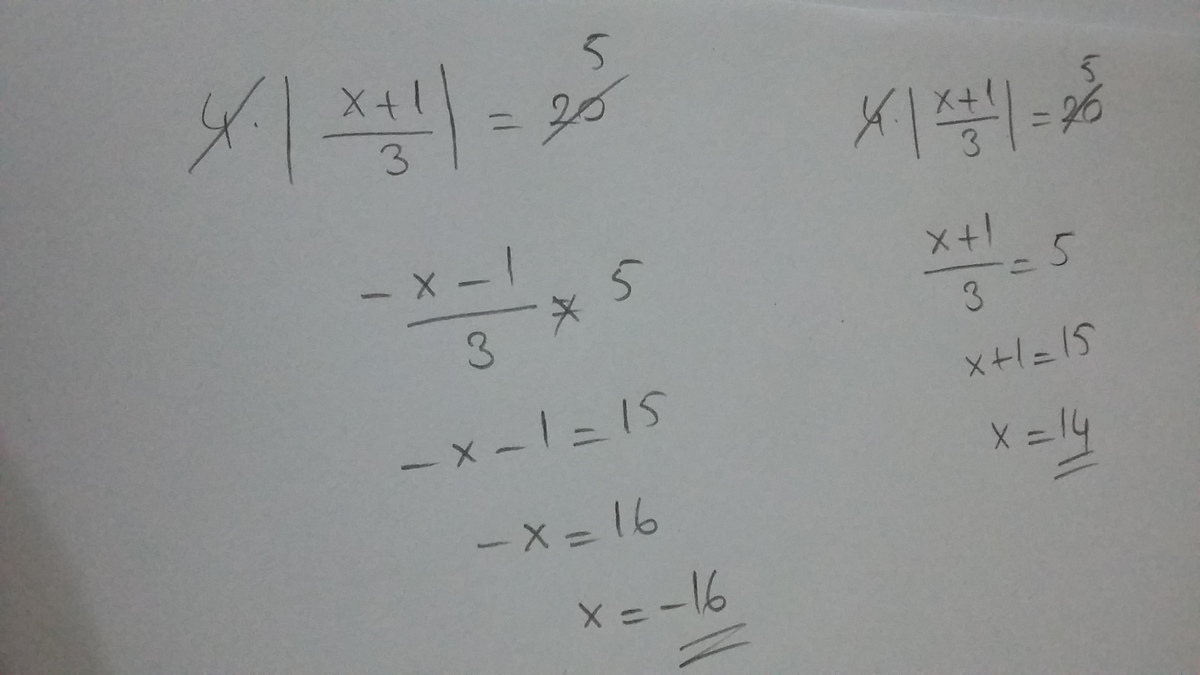 4. | x+1 / 3 | = 20 5
-x-1 / 3 = 5
-x-1=15
-x=16
x=-16
4. | x+1 / 3 | = 20 5
x+1 / 3 = 5
x+1=15
x=14